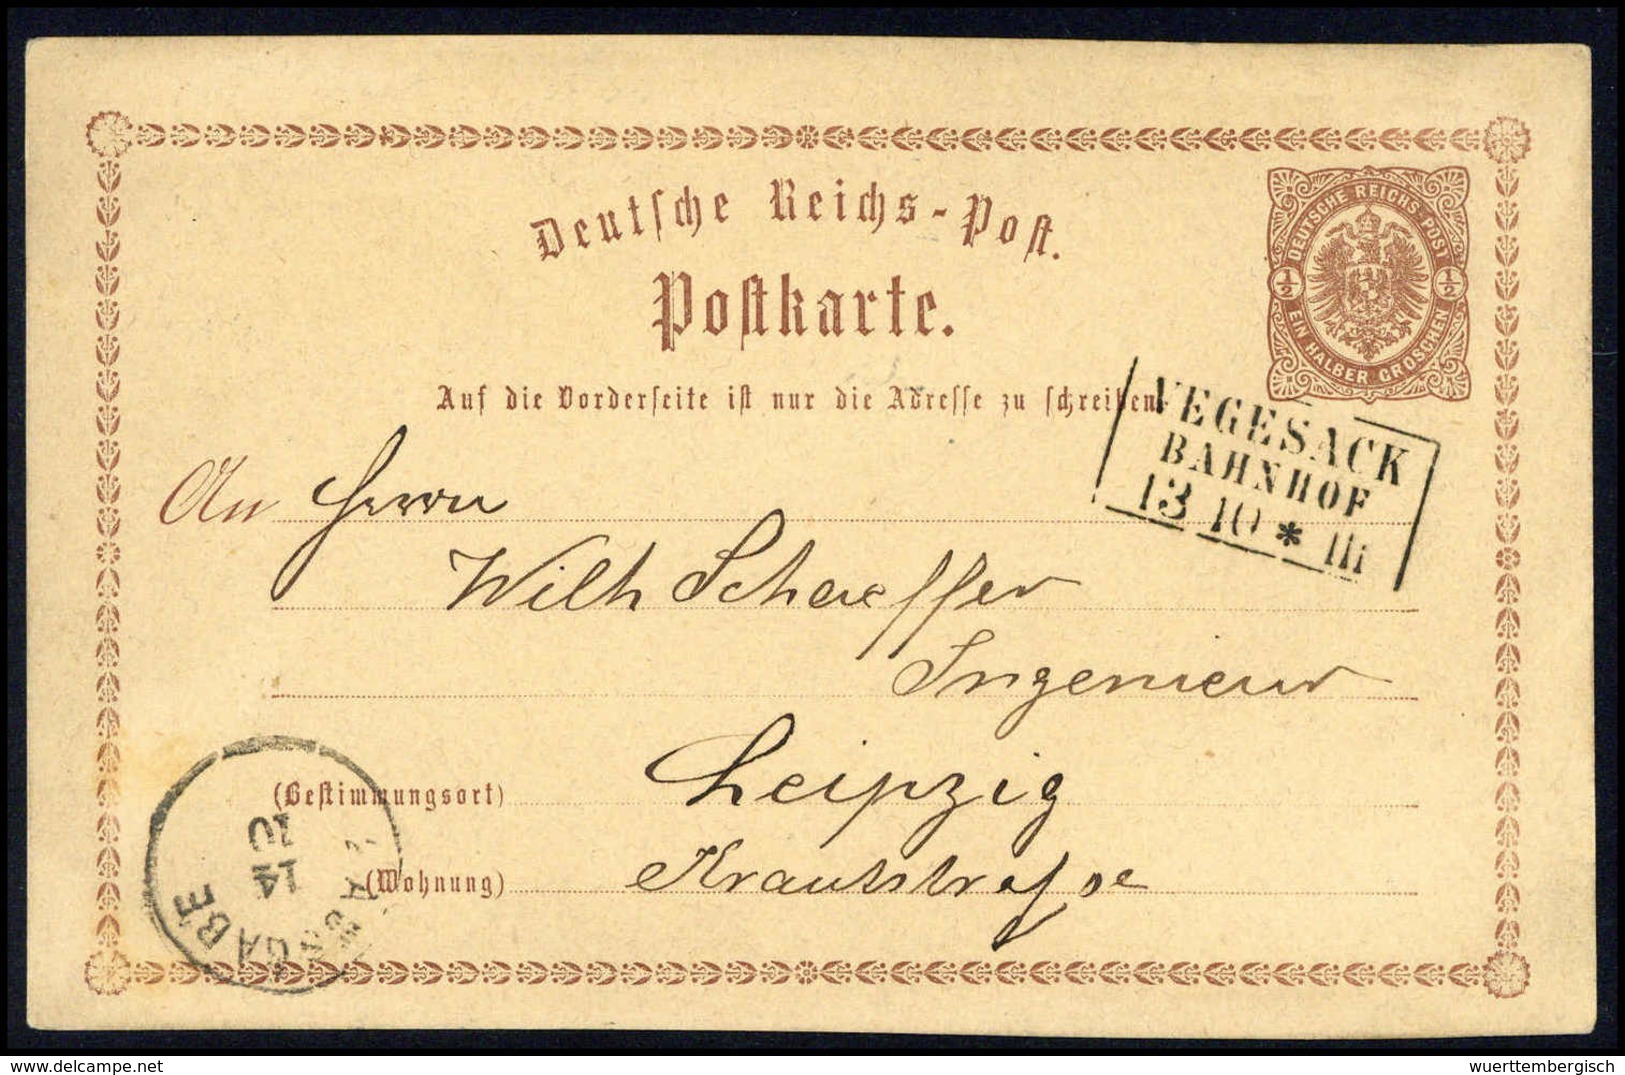 Deutsche Reichs-Post.
Postkarte.
DEUTSCHE REICHS-POST
½ ½
EIN HALBER GROSCHEN
Auf die Vorderseite ist nur die Adresse zu schreiben.
VEGESACK
BAHNHOF
13 10 * III
An Herrn
Wilh Schaeffer
Ingenieur
(Bestimmungsort) Leipzig
(Wohnung) Krautstrasse
14
10
delcampe.net
wuerttembergisch